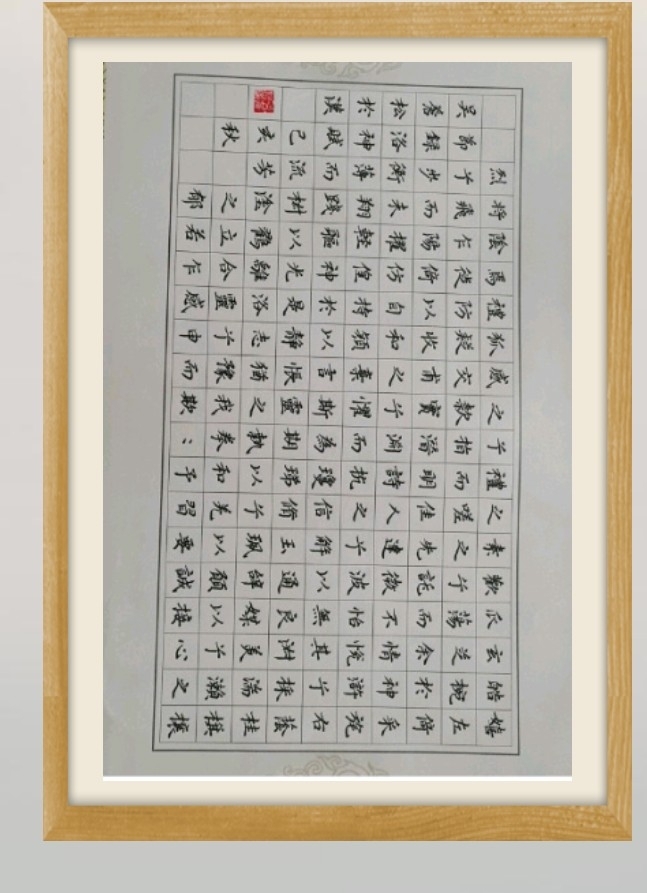 嬉左倚采旄右蔭桂旗攘
皓腕於神滸兮採湍瀨之
玄芝余情悅其淑美兮心
振蕩而不怡無良媒以接
歡兮託微波以通辭願誠
素之先達兮解玉珮以要
之嗟佳人之信脩兮羌習
禮而明詩抗瓊珶以和予
兮指潛淵而為期執眷〻
之款實兮懼斯靈之我欺
感交甫之棄言悵猶豫而
狐疑收和顏以靜志兮申
禮防以自持於是洛靈感
焉徙倚仿偟神光離合乍
陰乍陽擢輕軀以鶴立若
將飛而未翔踐椒塗之郁
烈步衡薄而流芳
節錄洛神賦己亥秋
吳蒼松於漢